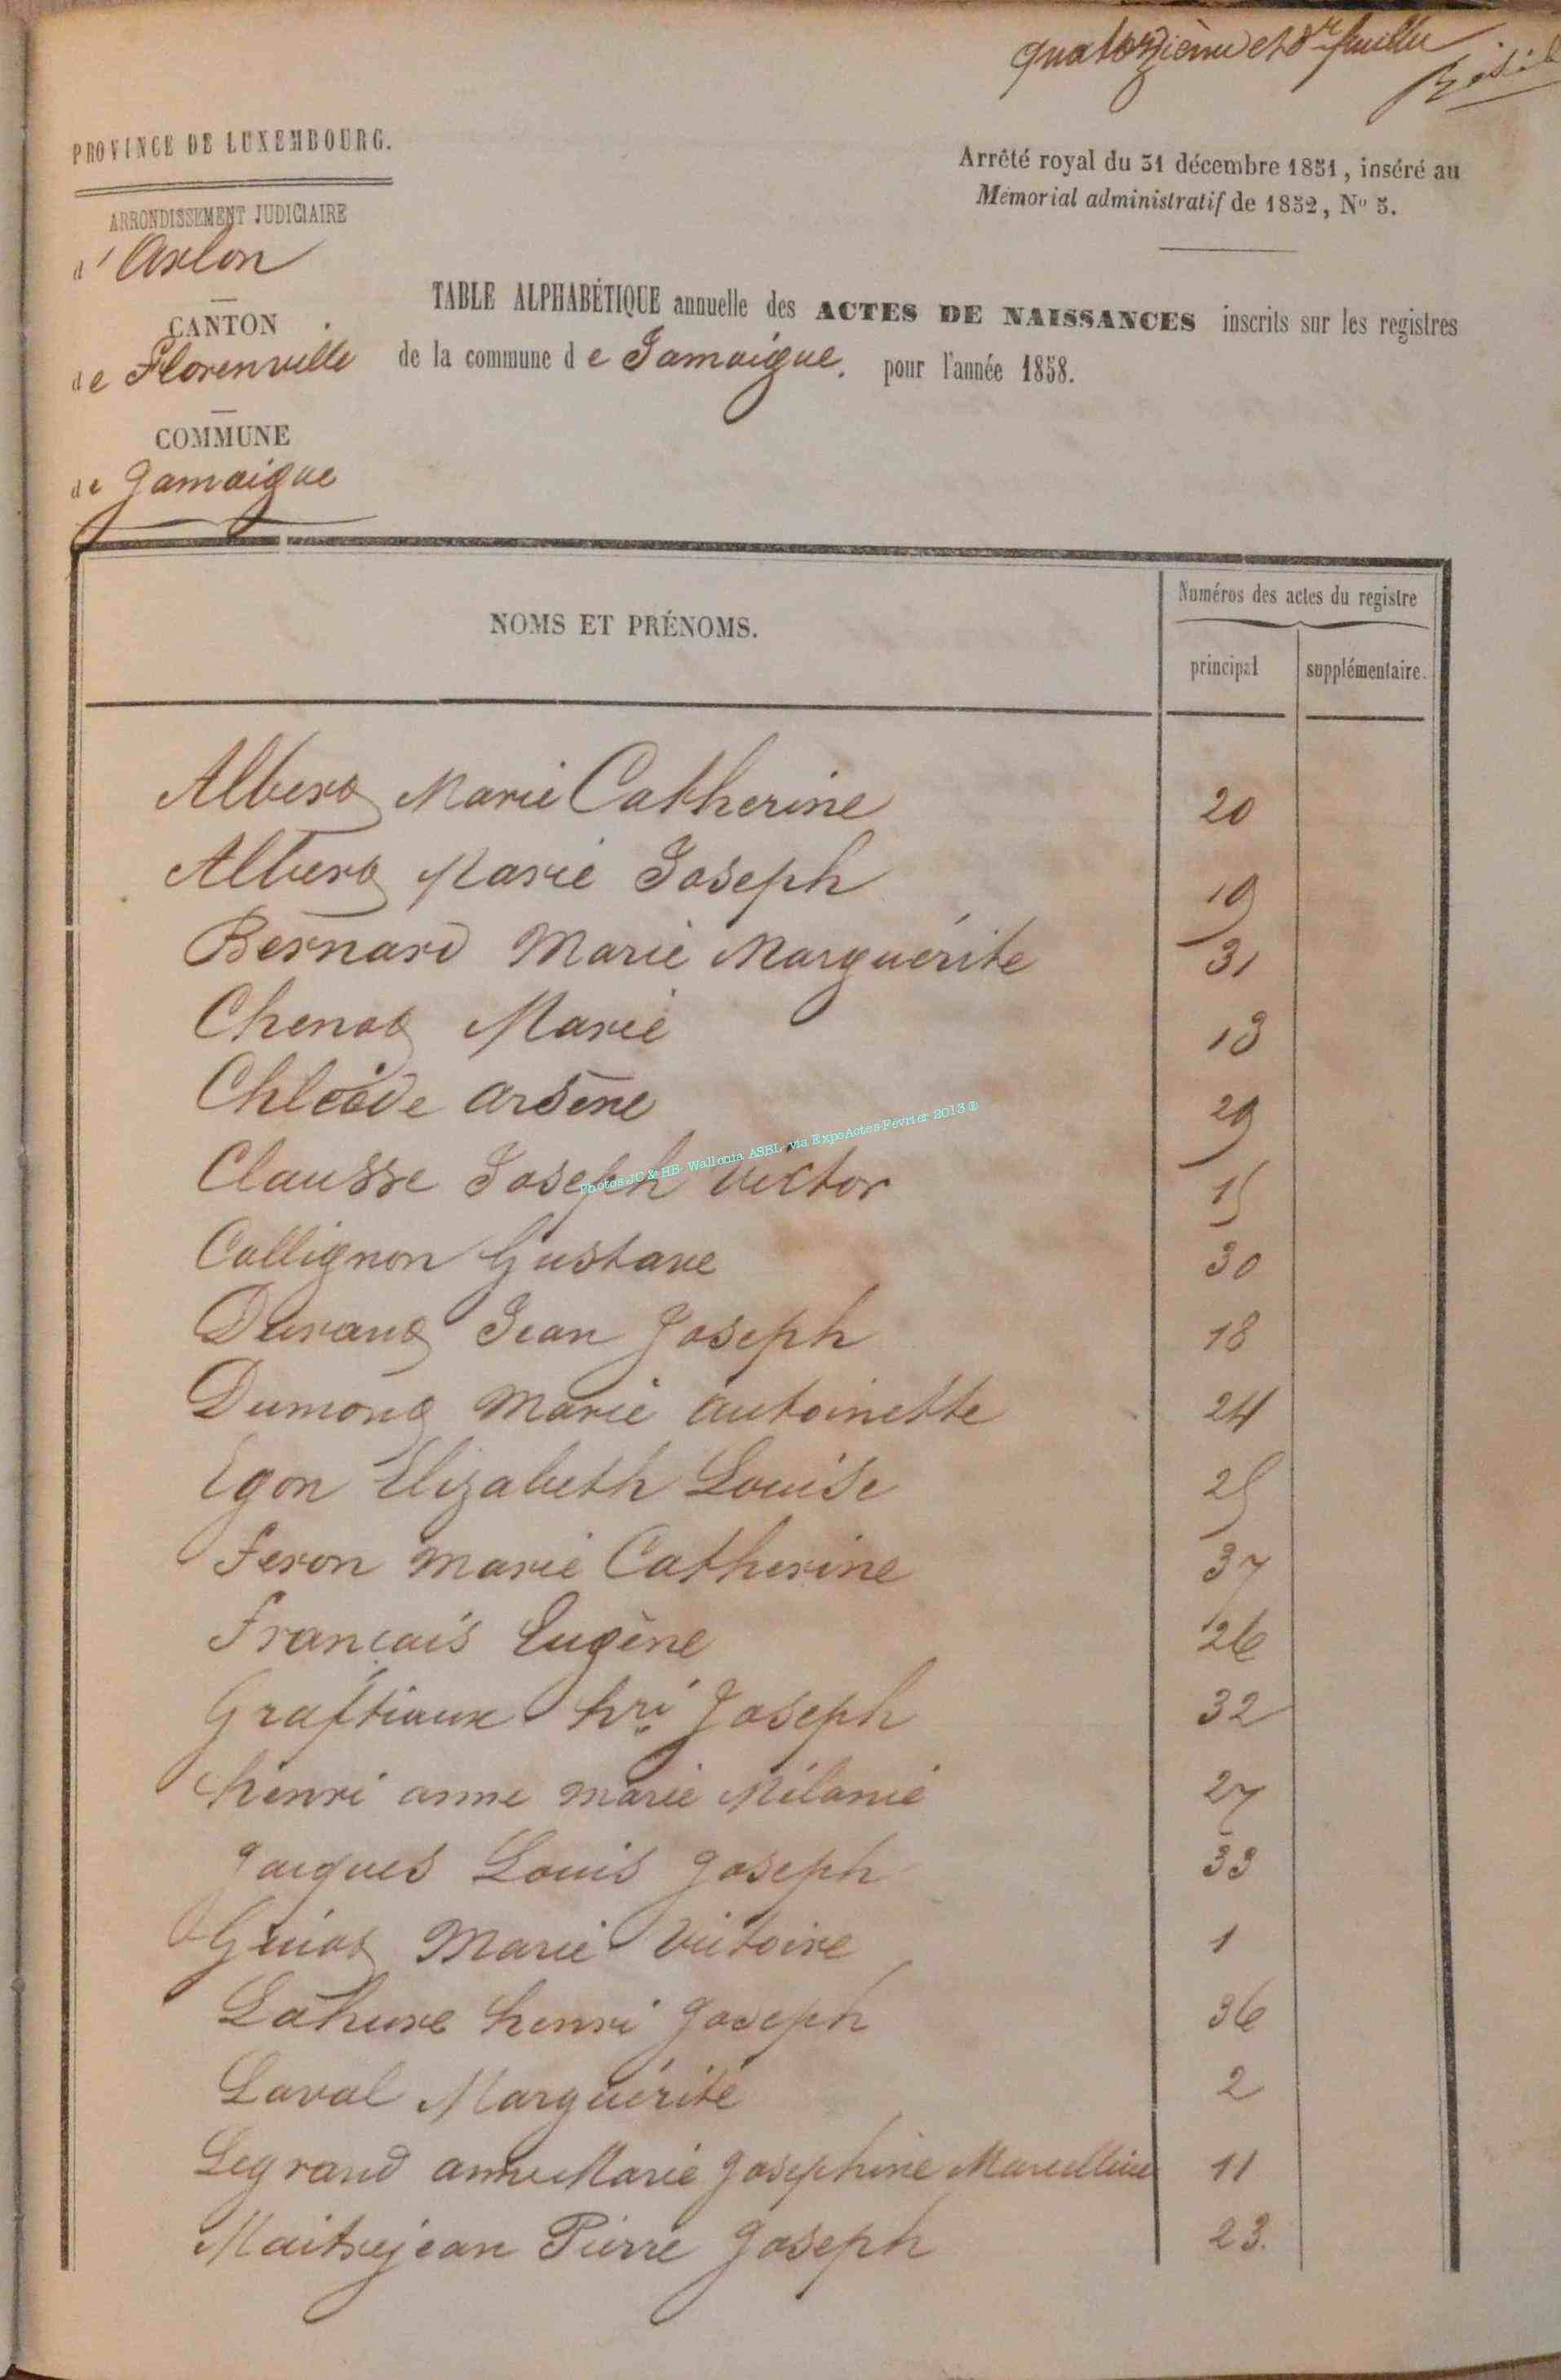 quatorzième et dr feuillet
PROVINCE DE LUXEMBOURG.
ARRONDISSEMENT JUDICIAIRE
d'Arlon
CANTON
de Florenville
COMMUNE
de Jamoigne
Arrêté royal du 31 décembre 1851, inséré au
Mémorial administratif de 1852, No 5.
TABLE ALPHABÉTIQUE annuelle des ACTES DE NAISSANCES inscrits sur les registres
de la commune de Jamoigne. pour l'année 1858.
NOMS ET PRÉNOMS.
Numéros des actes du registre
principal supplémentaire.
Albert Marie Catherine 20
Albert Marie Joseph 19
Bernard Marie Marguérite 31
Chenot Marie 13
Arsène 29
Clausse Joseph victor 15
Photos JC & HB Wallonia ASBL via ExpoActes Février 2013 ®
Collignon Gustave 30
Durand Jean Joseph 18
Dumont Marie antoinette 24
Egon Elizabeth Louise 25
Feron marie Catherine 37
Français Eugène 26
Graftiaux hri Joseph 32
henri anne marie Mélanie 27
Jacques Louis Joseph 33
Guiot Marie Victoire 1
Lahure henri Joseph 36
Laval Marguérite 2
Legrand anne Marie Joséphine Marcelline 11
Maitrejean Pierre Joseph 23.